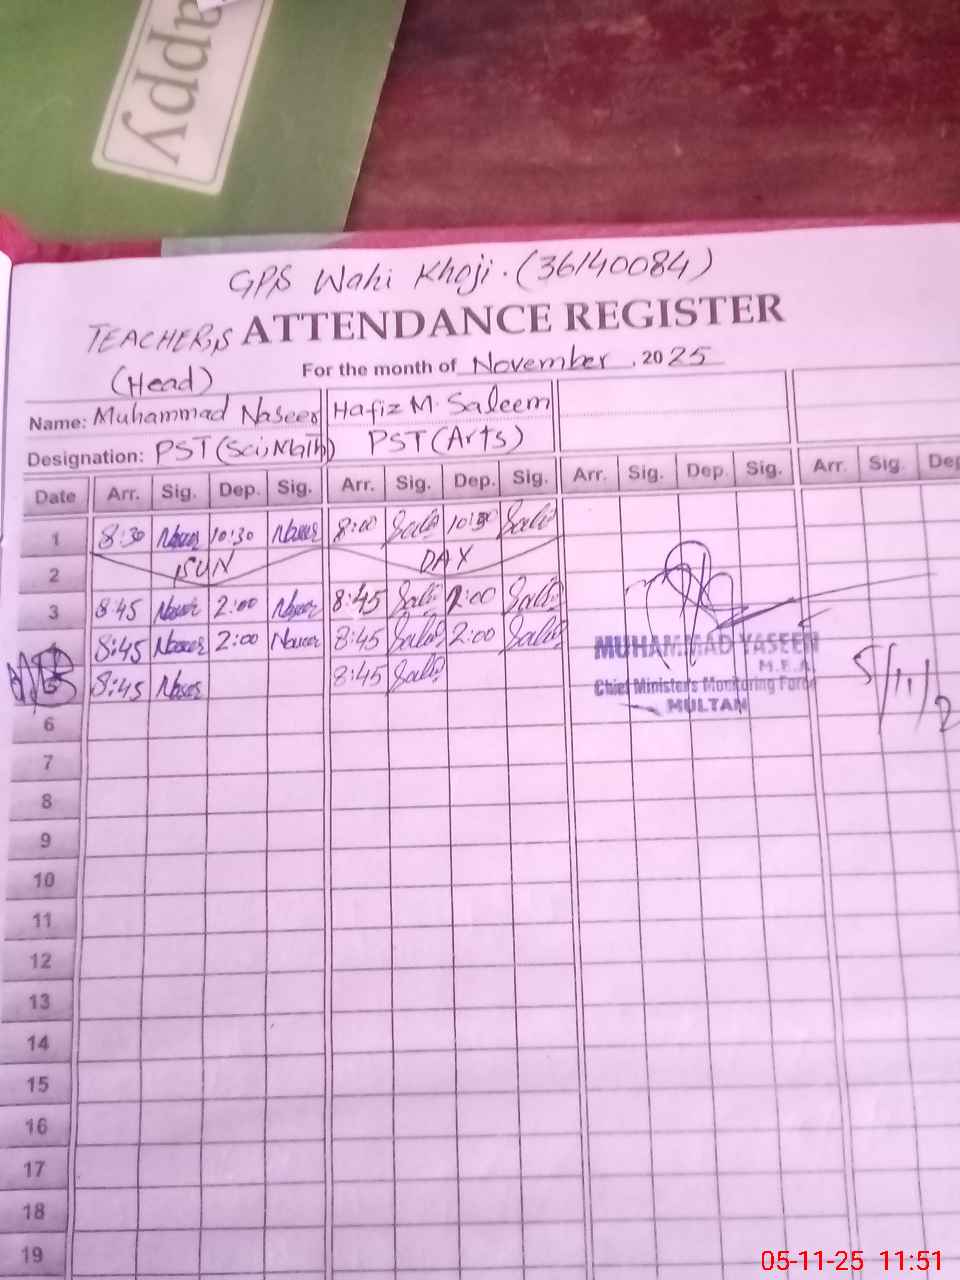 appy
GPS Wahi Khoji. (36140084)
TEACHER,S ATTENDANCE REGISTER
(Head) For the month of November, 2025
Name: Muhammad Naseer Hafiz M. Saleem
Designation: PST (Sci, Math) PST (Arts)
Date Arr. Sig. Dep. Sig. Arr. Sig. Dep. Sig. Arr. Sig. Dep. Sig. Arr. Sig. Dep
1 8:30 Naseer 10:30 Naseer 8:00 Sale 10:30 Sale
2 SUN DAY
3 8:45 Naseer 2:00 Naseer 8:45 Sale 2:00 Sale
8:45 Naseer 2:00 Naseer 8:45 Sale 2:00 Sale
8:45 Naseer 8:45 Sale
MUHAMMAD YASEEN
M.E.A
Chief Minister's Monitoring Force
MULTAN
5/11/2
6
7
8
9
10
11
12
13
14
15
16
17
18
19
05-11-25 11:51